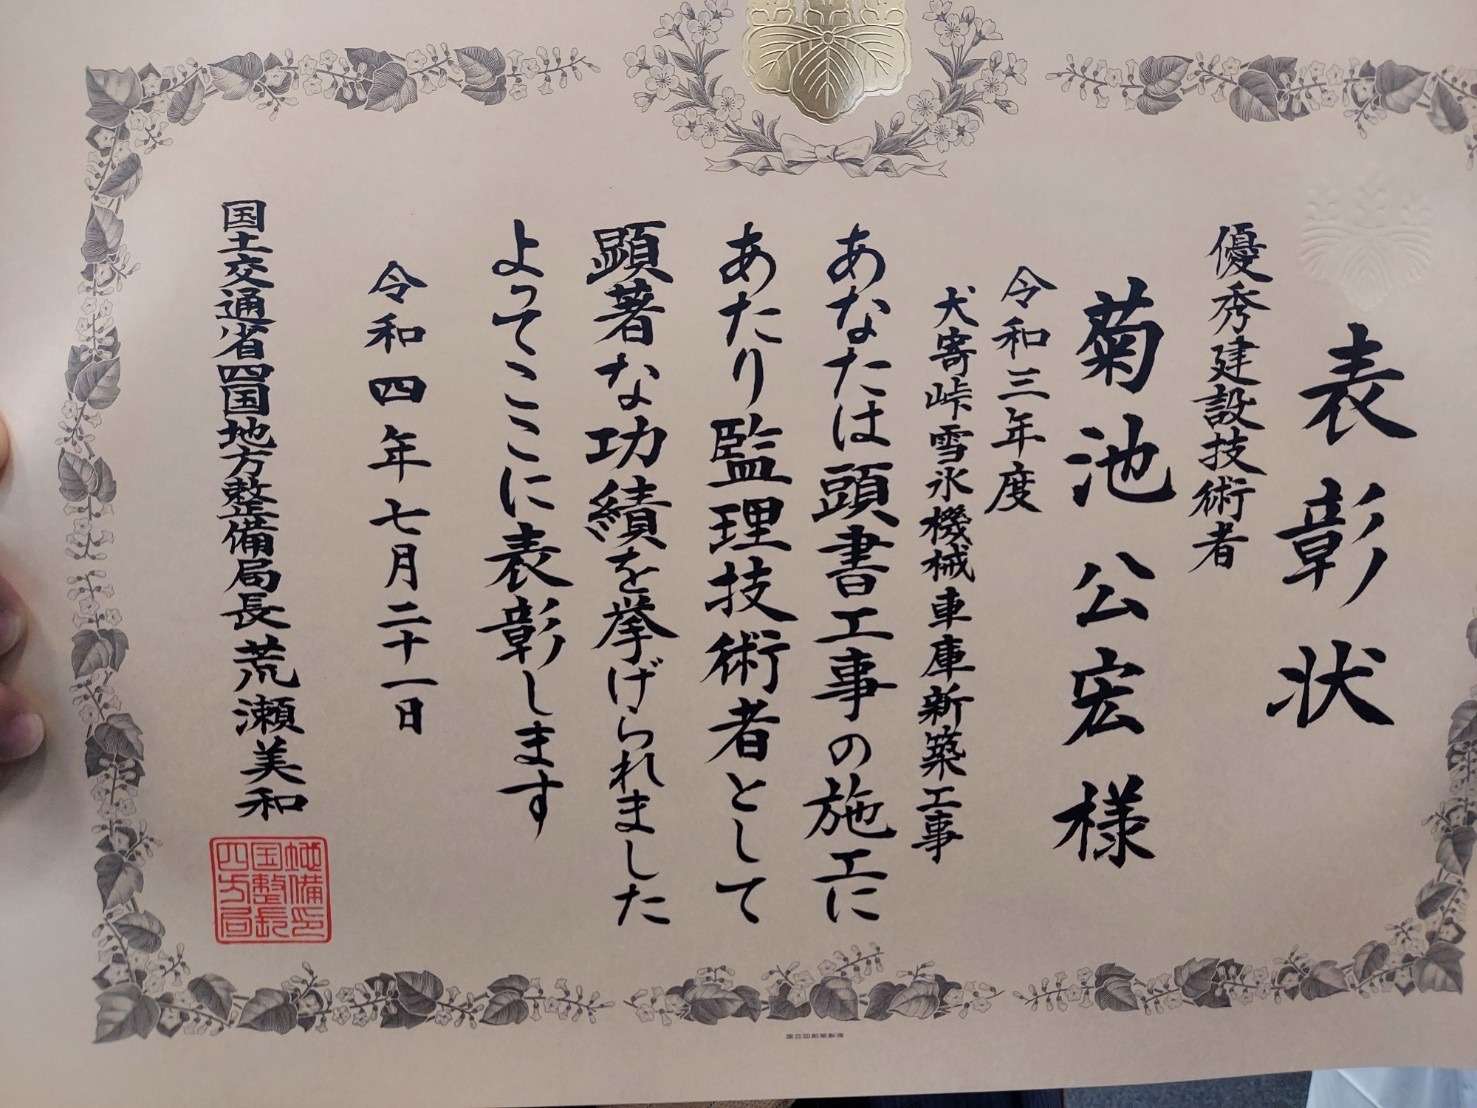 表彰状
優秀建設技術者
菊池公宏様
令和三年度
犬寄峠雪氷機械車庫新築工事
あなたは頭書工事の施工に
あたり監理技術者として
顕著な功績を挙げられました
よってここに表彰します
令和四年七月二十一日
国土交通省四国地方整備局長 荒瀬美和